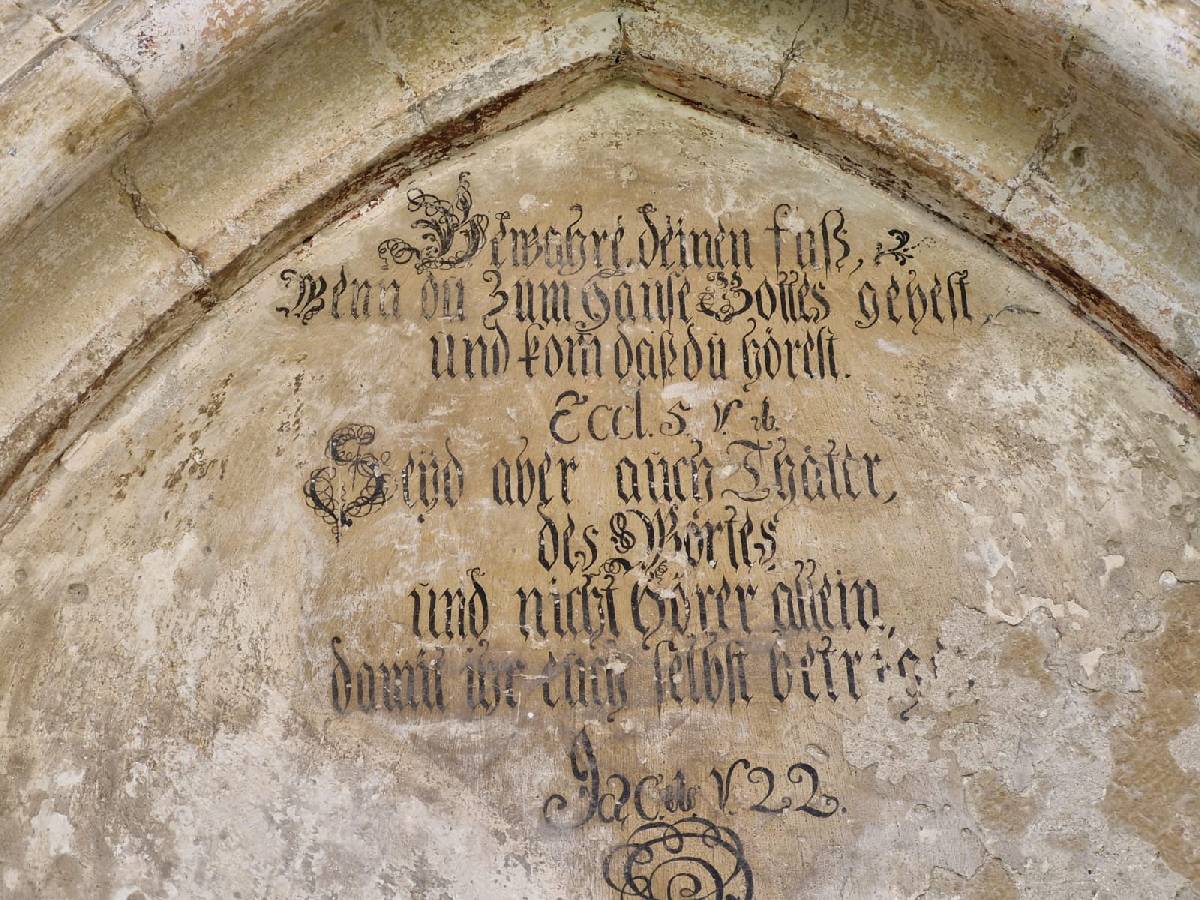 Bewahre deinen fuß,
Wenn du zum Hause Gottes gehest,
und kom̄ daß du hörest.
Eccl. 5. v.
Seÿd aber auch Thäter,
des Wortes
und nicht Hörer allein,
damit ihr euch selbst
Jac. v. 22.